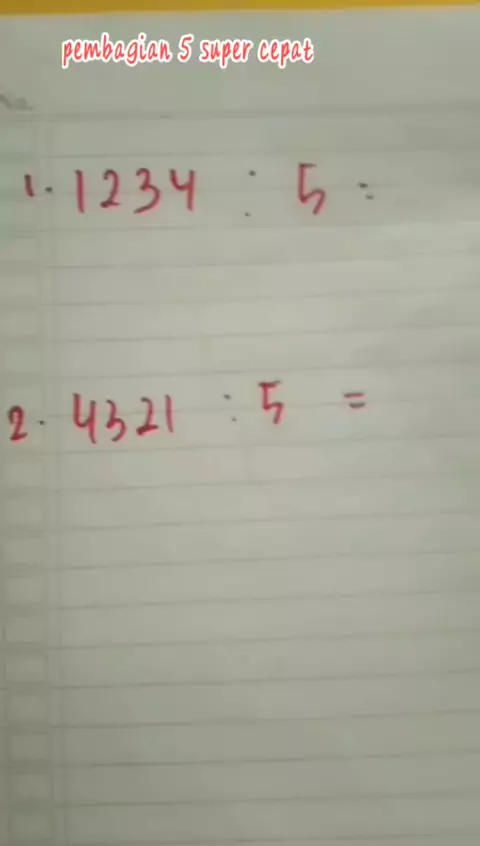 pembagian 5 super cepat
1. 1234 : 5 =
2. 4321 : 5 =